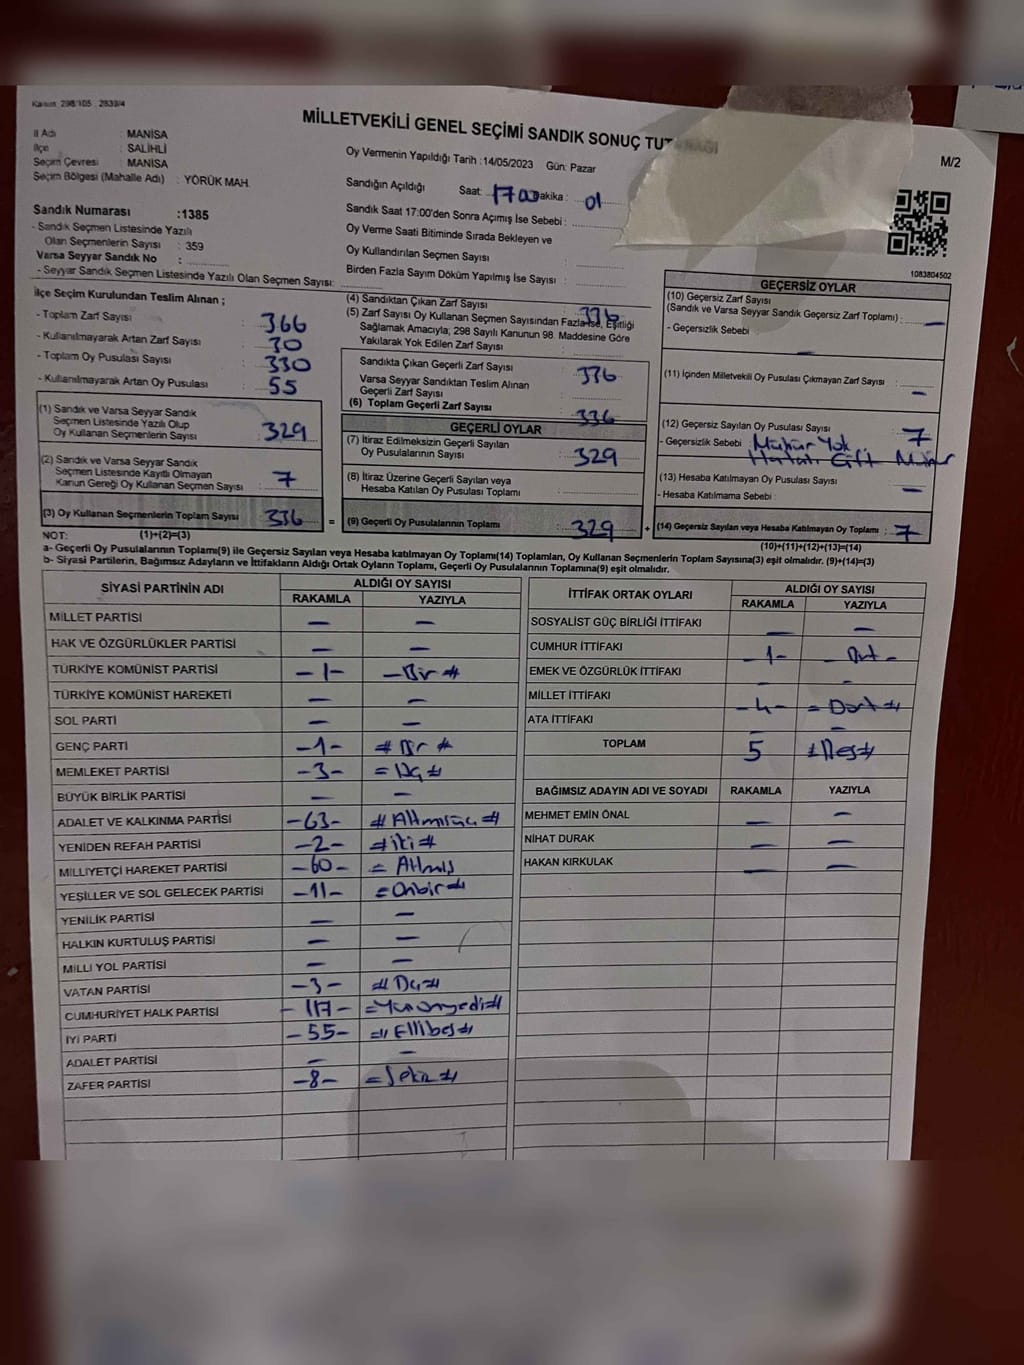 Kanun 298/105 , 2839/4
MİLLETVEKİLİ GENEL SEÇİMİ SANDIK SONUÇ
M/2
İl Adı : MANİSA
İlçe : SALİHLİ
Seçim Çevresi : MANİSA
Seçim Bölgesi (Mahalle Adı) : YÖRÜK MAH.
Sandık Numarası :1385
- Sandık Seçmen Listesinde Yazılı
Olan Seçmenlerin Sayısı : 359
Varsa Seyyar Sandık No :
- Seyyar Sandık Seçmen Listesinde Yazılı Olan Seçmen Sayısı:
Oy Vermenin Yapıldığı Tarih :14/05/2023 Gün: Pazar
Sandığın Açıldığı Saat: 17 Dakika : 01
Sandık Saat 17:00'den Sonra Açılmış İse Sebebi :
Oy Verme Saati Bitiminde Sırada Bekleyen ve
Oy Kullandırılan Seçmen Sayısı :
Birden Fazla Sayım Döküm Yapılmış İse Sayısı :
1083804502
İlçe Seçim Kurulundan Teslim Alınan ;
- Toplam Zarf Sayısı : 366
- Kullanılmayarak Artan Zarf Sayısı : 30
- Toplam Oy Pusulası Sayısı : 330
- Kullanılmayarak Artan Oy Pusulası : 55
(1) Sandık ve Varsa Seyyar Sandık
Seçmen Listesinde Yazılı Olup
Oy Kullanan Seçmenlerin Sayısı : 329
(2) Sandık ve Varsa Seyyar Sandık
Seçmen Listesinde Kayıtlı Olmayan
Kanun Gereği Oy Kullanan Seçmen Sayısı : 7
(3) Oy Kullanan Seçmenlerin Toplam Sayısı : 336 =
(4) Sandıktan Çıkan Zarf Sayısı : 336
(5) Zarf Sayısı Oy Kullanan Seçmen Sayısından Fazla İse, Eşitliği
Sağlamak Amacıyla; 298 Sayılı Kanunun 98. Maddesine Göre
Yakılarak Yok Edilen Zarf Sayısı :
Sandıkta Çıkan Geçerli Zarf Sayısı : 336
Varsa Seyyar Sandıktan Teslim Alınan
Geçerli Zarf Sayısı :
(6) Toplam Geçerli Zarf Sayısı : 336
GEÇERLİ OYLAR
(7) İtiraz Edilmeksizin Geçerli Sayılan
Oy Pusulalarının Sayısı : 329
(8) İtiraz Üzerine Geçerli Sayılan veya
Hesaba Katılan Oy Pusulası Toplamı :
(9) Geçerli Oy Pusulalarının Toplamı : 329 +
GEÇERSİZ OYLAR
(10) Geçersiz Zarf Sayısı
(Sandık ve Varsa Seyyar Sandık Geçersiz Zarf Toplamı) : —
- Geçersizlik Sebebi : —
(11) İçinden Milletvekili Oy Pusulası Çıkmayan Zarf Sayısı : —
(12) Geçersiz Sayılan Oy Pusulası Sayısı : 7
- Geçersizlik Sebebi : Mühür Yok
Hatalı Çift Mühür
(13) Hesaba Katılmayan Oy Pusulası Sayısı : —
- Hesaba Katılmama Sebebi :
(14) Geçersiz Sayılan veya Hesaba Katılmayan Oy Toplamı : 7
NOT: (1)+(2)=(3)
(10)+(11)+(12)+(13)=(14)
a- Geçerli Oy Pusulalarının Toplamı(9) ile Geçersiz Sayılan veya Hesaba katılmayan Oy Toplamı(14) Toplamları, Oy Kullanan Seçmenlerin Toplam Sayısına(3) eşit olmalıdır. (9)+(14)=(3)
b- Siyasi Partilerin, Bağımsız Adayların ve İttifakların Aldığı Ortak Oyların Toplamı, Geçerli Oy Pusulalarının Toplamına(9) eşit olmalıdır.
SİYASİ PARTİNİN ADI
ALDIĞI OY SAYISI
RAKAMLA YAZIYLA
MİLLET PARTİSİ — —
HAK VE ÖZGÜRLÜKLER PARTİSİ — —
TÜRKİYE KOMÜNİST PARTİSİ -1- -Bir#
TÜRKİYE KOMÜNİST HAREKETİ — —
SOL PARTİ — —
GENÇ PARTİ -1- #Bir#
MEMLEKET PARTİSİ -3- =Üç#
BÜYÜK BİRLİK PARTİSİ — —
ADALET VE KALKINMA PARTİSİ -63- #Altmışüç#
YENİDEN REFAH PARTİSİ -2- #iki#
MİLLİYETÇİ HAREKET PARTİSİ -60- = Altmış
YEŞİLLER VE SOL GELECEK PARTİSİ -11- =Onbir#
YENİLİK PARTİSİ — —
HALKIN KURTULUŞ PARTİSİ — —
MİLLİ YOL PARTİSİ — —
VATAN PARTİSİ -3- #Üç#
CUMHURİYET HALK PARTİSİ -117- =Yüzonyedi#
İYİ PARTİ -55- =Ellibeş#
ADALET PARTİSİ — —
ZAFER PARTİSİ -8- =Sekiz#
İTTİFAK ORTAK OYLARI
ALDIĞI OY SAYISI
RAKAMLA YAZIYLA
SOSYALİST GÜÇ BİRLİĞİ İTTİFAKI — —
CUMHUR İTTİFAKI -1-
EMEK VE ÖZGÜRLÜK İTTİFAKI — —
MİLLET İTTİFAKI -4- =Dört#
ATA İTTİFAKI —
TOPLAM 5 #Beş#
BAĞIMSIZ ADAYIN ADI VE SOYADI RAKAMLA YAZIYLA
MEHMET EMİN ÖNAL — —
NİHAT DURAK — —
HAKAN KIRKULAK — —